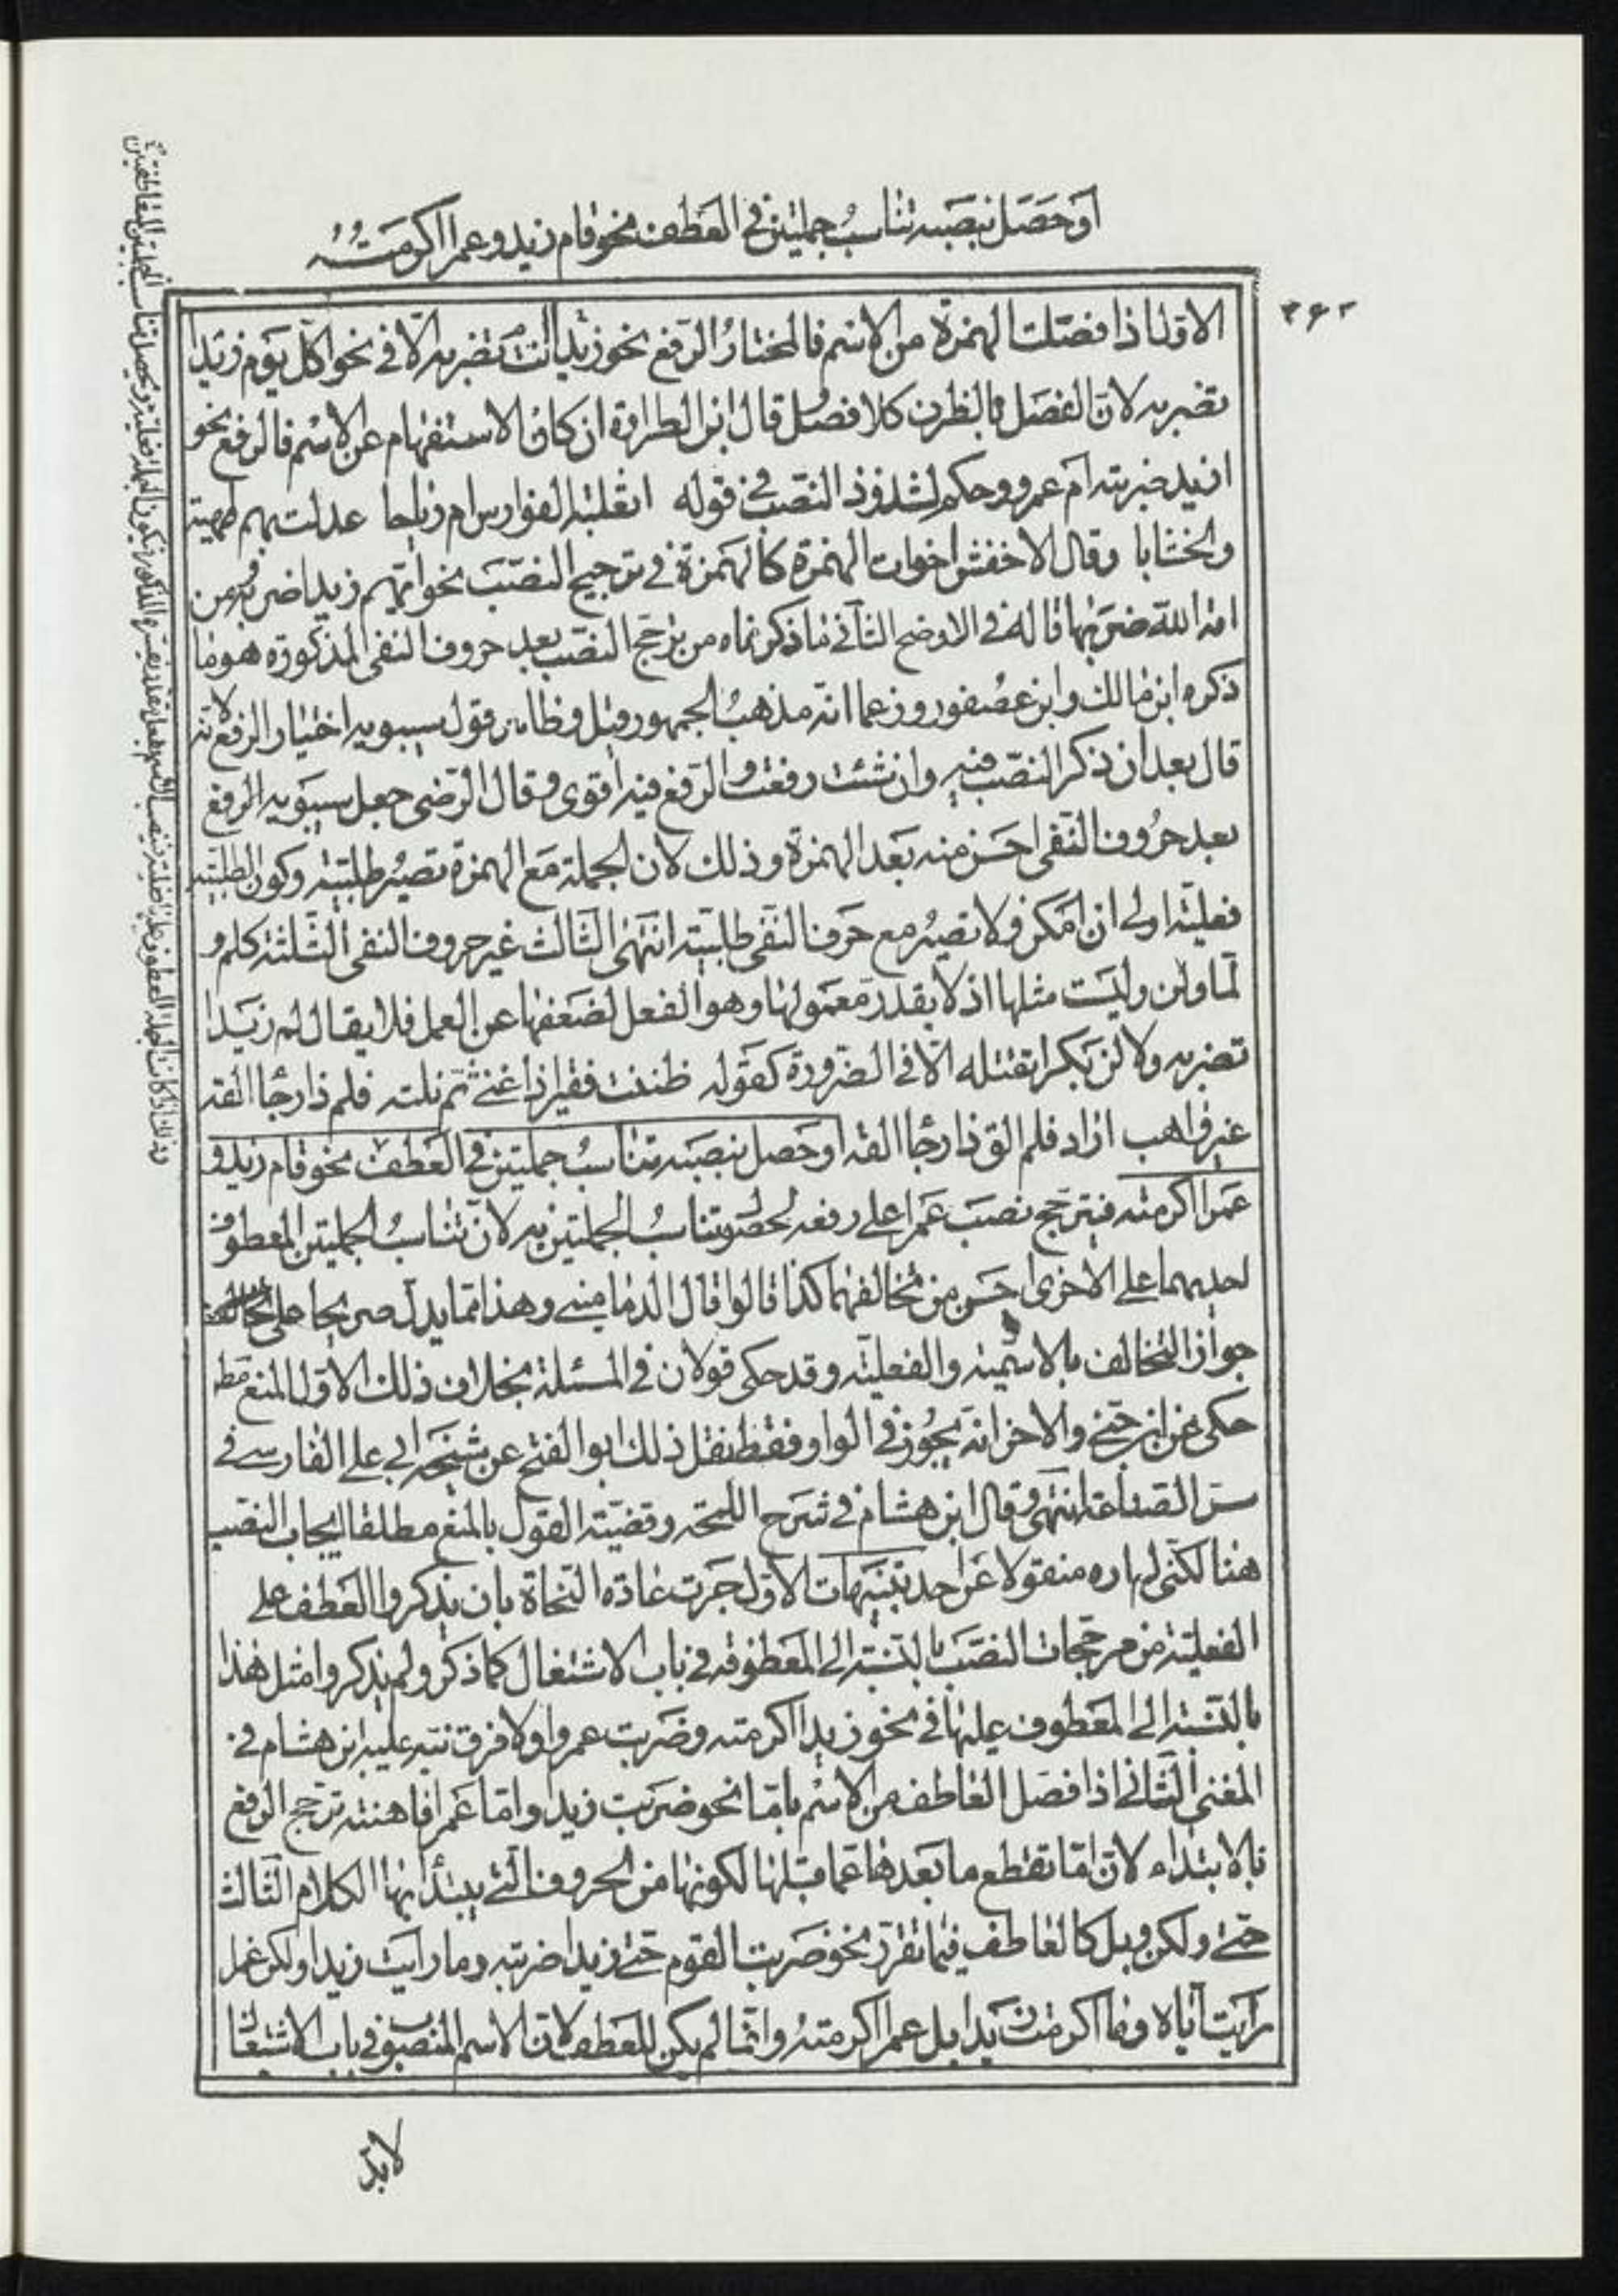 او حصل بنصبه تناسب جملتين في العطف نحو قام زيد وعمرا اكرمته
الاول اذا فصلت الهمزة من الاسم فالمختار الرفع نحو زيد انت تضربه الا في نحو اكل يوم زيدا
تضربه لان الفصل بالظرف كلا فصل قال ابن الطراوة ان كان الاستفهام عن الاسم فالرفع نحو
ازيد ضربته ام عمرو وحكم لشذوذ النصب في قوله اثعلبة الفوارس ام رياحا عدلت بهم طهية
والخشابا وقال الاخفش اخوات الهمزة كالهمزة في ترجيح النصب نحو ايهم زيدا ضربه ومن
امة الله ضربها قاله في الاوضح الثاني ما ذكرناه من ترجح النصب بعد حروف النفي المذكورة هو ما
ذكره ابن مالك وابن عصفور وزعما انه مذهب الجمهور وقيل وظاهر قول سيبويه اختيار الرفع لانه
قال بعد ان ذكر النصب فيه وان شئت رفعت والرفع فيه اقوى وقال الرضي جعل سيبويه الرفع
بعد حروف النفي احسن منه بعد الهمزة وذلك لان الجملة مع الهمزة تصير طلبية وكون الطلبية
فعلية اولى ان امكن ولا تصير مع حرف النفي طلبية انتهى الثالث غير حروف النفي الثلثة كلم و
لما ولن وليست مثلها اذ لا يقدر معمولها وهو الفعل لضعفها عن العمل فلا يقال لم زيدا
تضربه ولا لن بكرا تقتله الا في الضرورة كقوله ظننت فقيرا ذا غنى ثم نلته فلم ذا رجا القه
غير واهب اراد فلم الق ذا رجا القه او حصل بنصبه تناسب جملتين في العطف نحو قام زيد و
عمرا اكرمته فيترجح نصب عمرا على رفعه لحصول تناسب الجملتين به لان تناسب الجملتين المعطوفة
احديهما على الاخرى احسن من تخالفهما كذا قالوا قال الدماميني وهذا مما يدل صريحا على
جواز التخالف بالاسمية والفعلية وقد حكى قولان في المسئلة بخلاف ذلك الاول المنع مط
حكي عن ابن جني والاخر انه يجوز في الواو فقط نقل ذلك ابو الفتح عن شيخه ابي علي الفارسي في
سر الصناعة انتهى وقال ابن هشام في شرح اللمحة وقضية القول بالمنع مطلقا ايجاب النصب
هنا لكني لم اره منقولا عن احد تنبيهات الاول جرت عادة النحاة بان يذكروا العطف على
الفعلية من مرجحات النصب بالنسبة الى المعطوفة في باب الاشتغال كما ذكر ولم يذكروا مثل هذا
بالنسبة الى المعطوف عليها في نحو زيدا اكرمته وضربت عمروا ولا فرق نبه عليه ابن هشام في
المغني الثاني اذا فصل العاطف من الاسم باما نحو ضربت زيدا واما عمرا فاهنته ترجح الرفع
بالابتداء لان اما تقطع ما بعدها عما قبلها لكونها من الحروف التي يبتدأ بها الكلام الثالث
حتى ولكن وبل كالعاطف فيما تقرر نحو ضربت القوم حتى زيدا ضربته وما رايت زيدا ولكن عمرا
رايت اياه وما اكرمت زيدا بل عمرا اكرمته وانما لم يكن للعطف لان الاسم المنصوب في باب الاشتغال
لابد